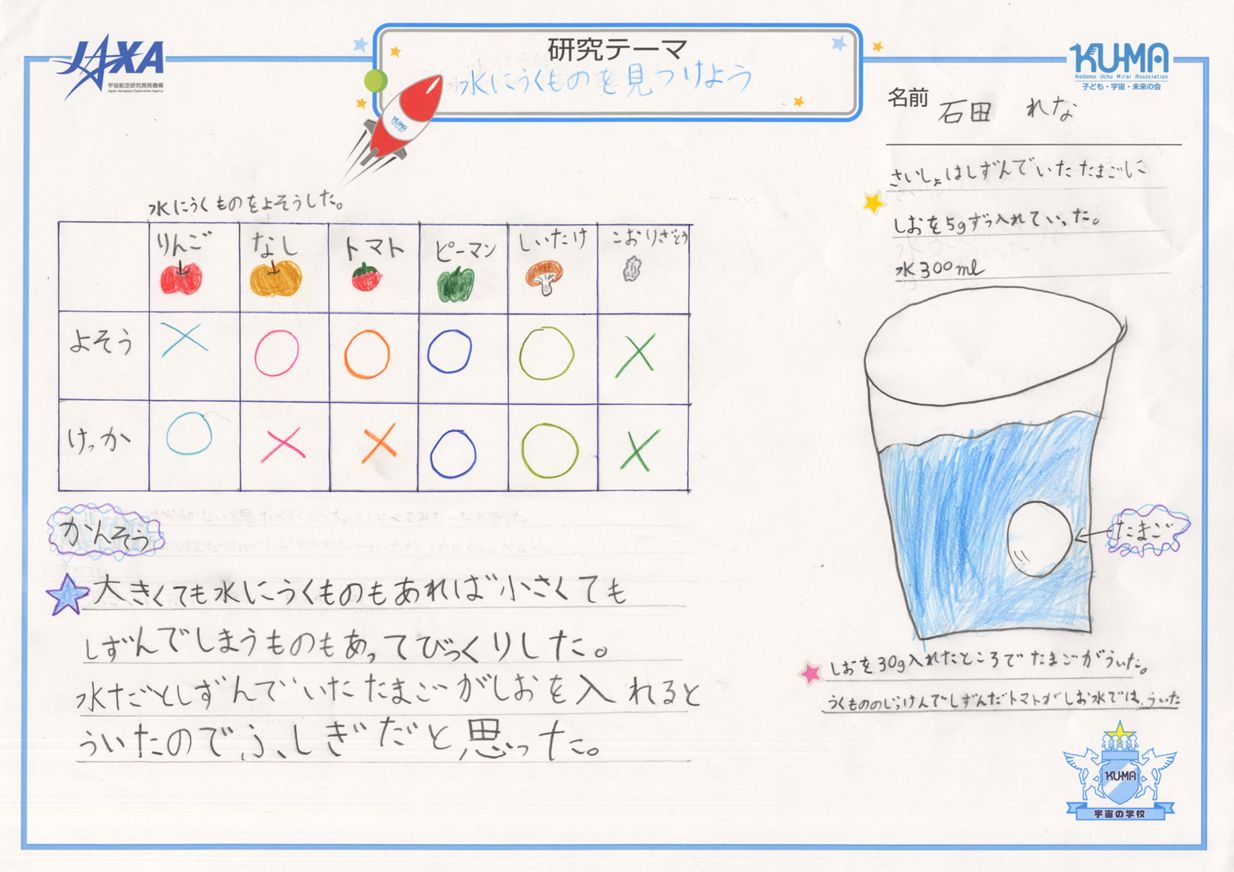 JAXA
宇宙航空研究開発機構
Japan Aerospace Exploration Agency
研究テーマ
水にうくものを見つけよう
KU-MA
Kodomo Uchu Mirai Association
子ども・宇宙・未来の会
名前 石田 れな
水にうくものをよそうした。
りんご なし トマト ピーマン しいたけ こおりざとう
よそう × ○ ○ ○ ○ ×
けっか ○ × × ○ ○ ×
かんそう
大きくても水にうくものもあれば小さくても
しずんでしまうものもあってびっくりした。
水だとしずんでいたたまごがしおを入れると
ういたのでふしぎだと思った。
さいしょはしずんでいたたまごに
しおを5gずつ入れていった。
水300ml
たまご
しおを30g入れたところでたまごがういた。
うくもののじっけんでしずんだトマトがしお水では、ういた
KU-MA
宇宙の学校